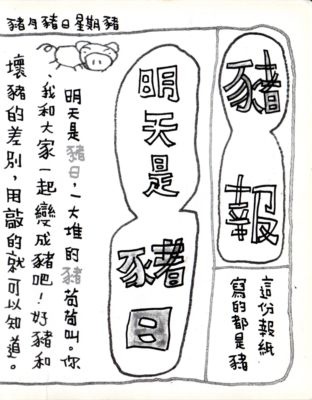 豬月豬日星期豬
豬報
這份報紙
寫的都是豬
明天是豬日
明天是豬日，一大堆的豬苗苗叫。你
、我和大家一起變成豬吧！好豬和
壞豬的差別，用敲的就可以知道。